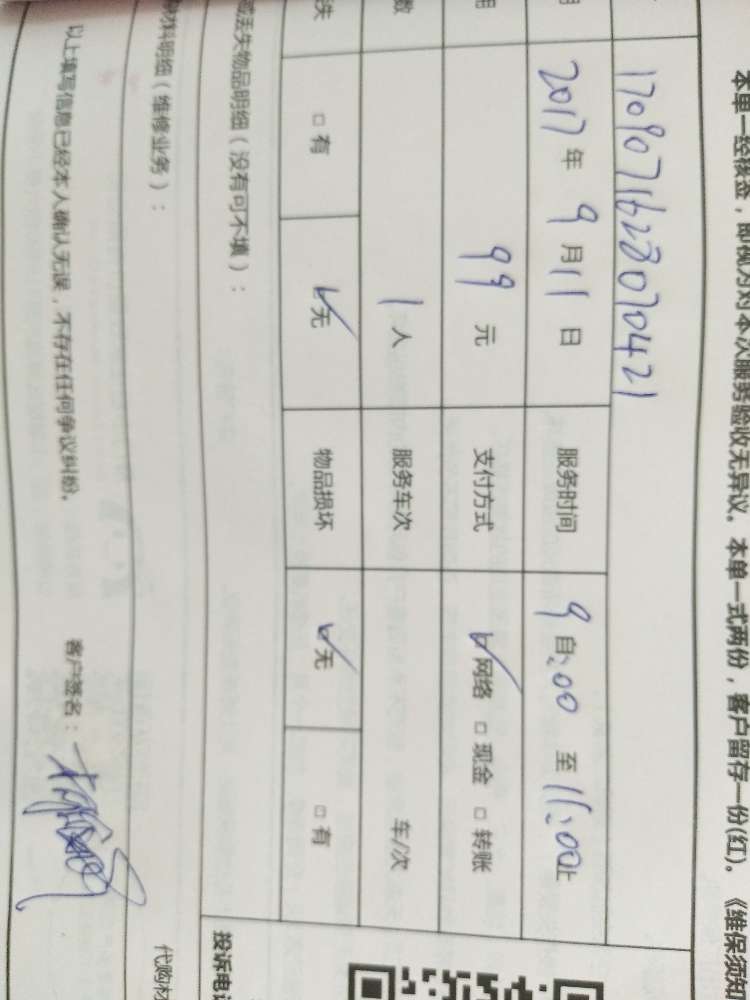 本单一经核签，即视为对本次服务验收无异议。本单一式两份，客户留存一份(红)。《维保须知
170907162807042 1
2017 年 9 月 11 日 服务时间 9 自:00 至 11:00止
用 99 元 支付方式 ☑网络 □ 现金 □ 转账
数 1 人 服务车次 车/次
失 □ 有 ☑无 物品损坏 ☑无 □ 有
丢失物品明细（没有可不填）：
投诉电
材料明细（维修业务）：
代购材
以上填写信息已经本人确认无误，不存在任何争议纠纷。 客户签名：